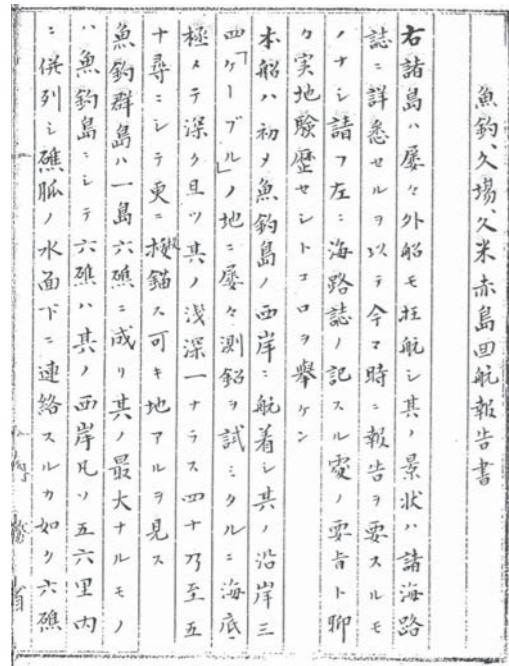 魚釣、久場、久米赤島回航報告書
右諸島ハ屡々外船モ枉航シ其ノ景状ハ諸海路
誌ニ詳悉セルヲ以テ今マ時ニ報告ヲ要スルモ
ノナシ請フ左ニ海路誌ノ記スル処ノ要旨ト聊
カ実地験歴セシトコロヲ挙ケン
本船ハ初メ魚釣島ノ西岸ニ航着シ其ノ沿岸三
四「ケーブル」ノ地ニ屡々測鉛ヲ試ミタルニ海底
極メテ深ク且ツ其ノ浅深一ナラス四十乃至五
十尋ニシテ更ニ投錨ス可キ地アルヲ見ス
魚釣群島ハ一島六礁ニ成リ其ノ最大ナルモノ
ハ魚釣島ニシテ六礁ハ其ノ西岸凡ソ五六里内
ニ併列シ礁脈ノ水面下ニ連絡スルカ如ク六礁